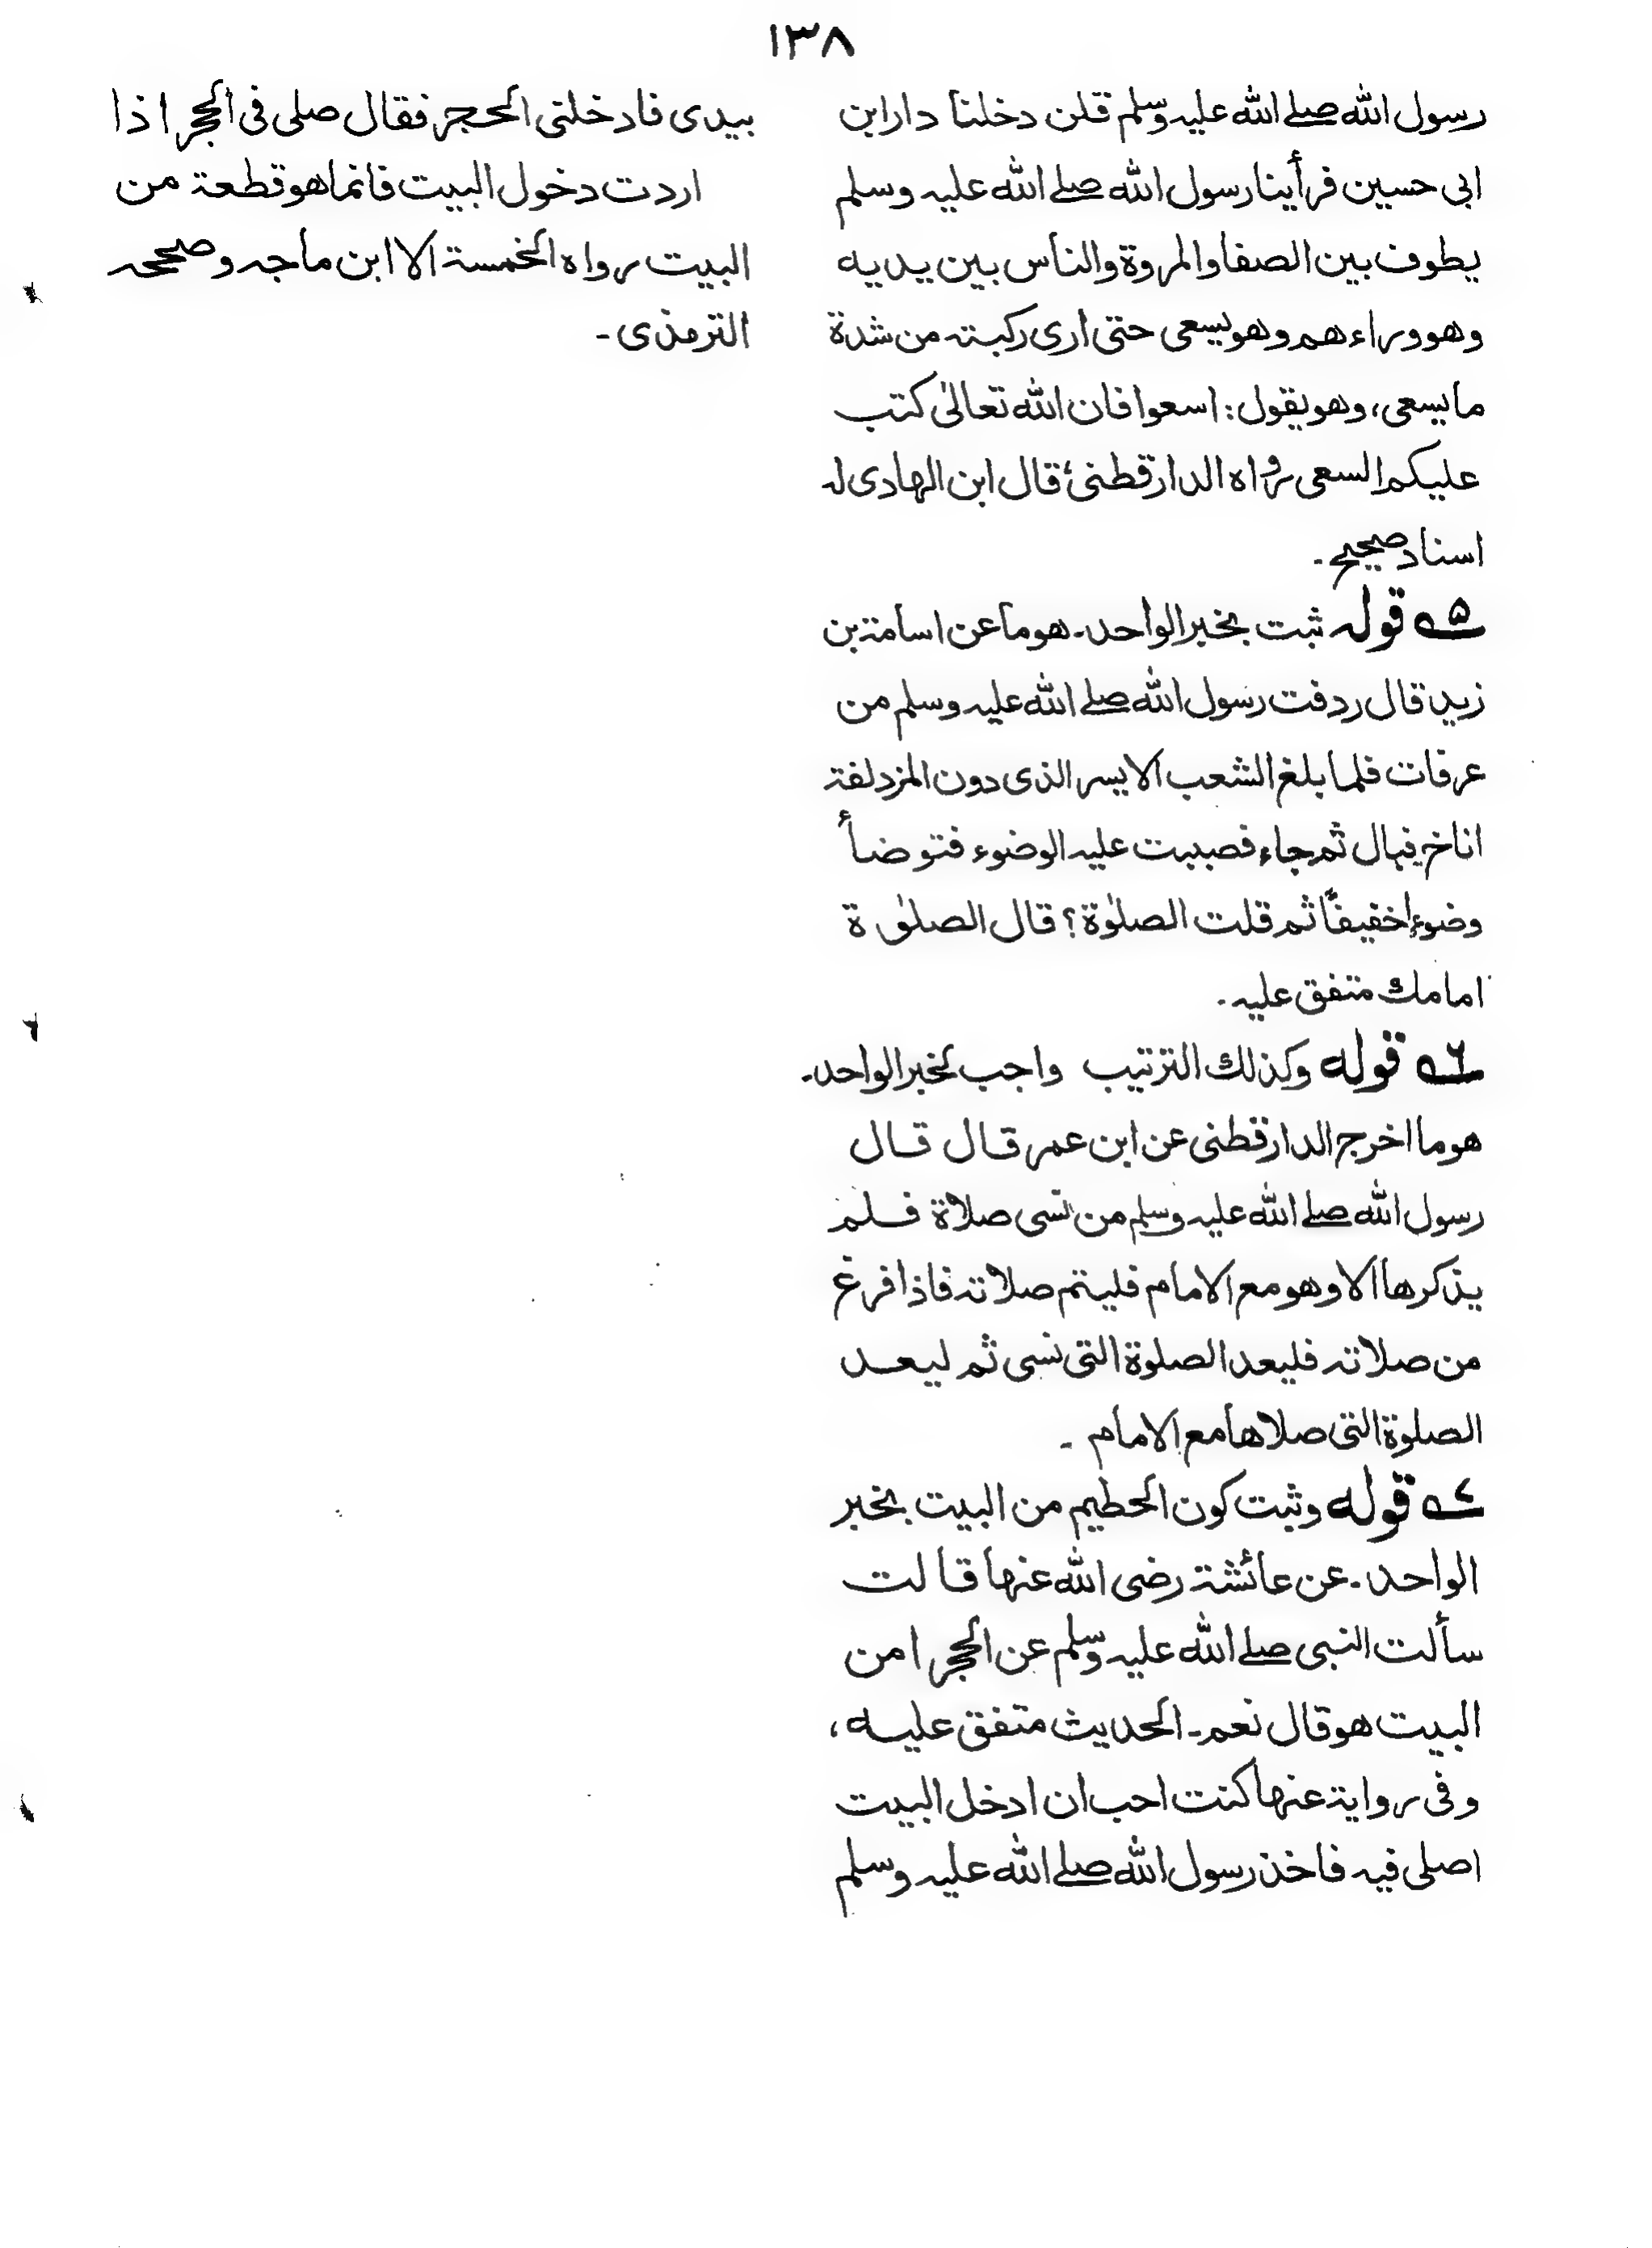 ١٣٨
رسول الله صلے الله عليہ وسلم قلن دخلنا دار ابن
ابى حسين فرأينا رسول الله صلے الله عليہ وسلم
يطوف بين الصفا والمروة والناس بين يديه
وهو وراءهم وهو يسعى حتى ارى ركبتہ من شدة
ما يسعى، وهو يقول: اسعوا فان الله تعالىٰ كتب
عليكم السعى رواه الدارقطنىؒ قال ابن الهادى لہ
اسناد صحيح۔
؁۵ قولہ ثبت بخبر الواحد۔ هو ما عن اسامة بن
زيد قال ردفت رسول الله صلے الله عليہ وسلم من
عرفات فلما بلغ الشعب الايسر الذى دون المزدلفة
اناخ فبال ثم جاء فصببت عليہ الوضوء فتوضأ
وضوءا خفيفًا ثم قلت الصلوٰة؟ قال الصلوٰة
امامك متفق عليہ۔
؁۶ قوله وكذلك الترتيب واجب بخبر الواحد۔
هو ما اخرج الدارقطنى عن ابن عمر قال قال
رسول الله صلے الله عليہ وسلم من نسى صلاة فلم
يذكرها الا وهو مع الامام فليتم صلاتہ فاذا فرغ
من صلاتہ فليعد الصلوة التى نسى ثم ليعد
الصلوة التى صلاها مع الامام ۔
؁۷ قوله وثبت كون الحطيم من البيت بخبر
الواحد۔ عن عائشة رضى الله عنها قالت
سألت النبى صلے الله عليہ وسلم عن الحجر امن
البيت هو قال نعم۔ الحديث متفق عليه،
وفى رواية عنها كنت احب ان ادخل البيت
اصلى فيہ فاخذ رسول الله صلے الله عليہ وسلم
بيدى فادخلنى الحجر فقال صلى فى الحجر اذا
اردت دخول البيت فانما هو قطعة من
البيت رواه الخمسة الا ابن ماجہ وصححہ
الترمذى۔